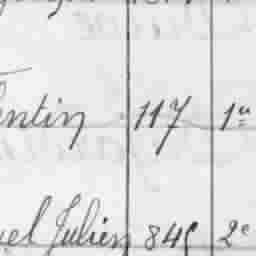 entin 117 1er
uel Julien 849 2e